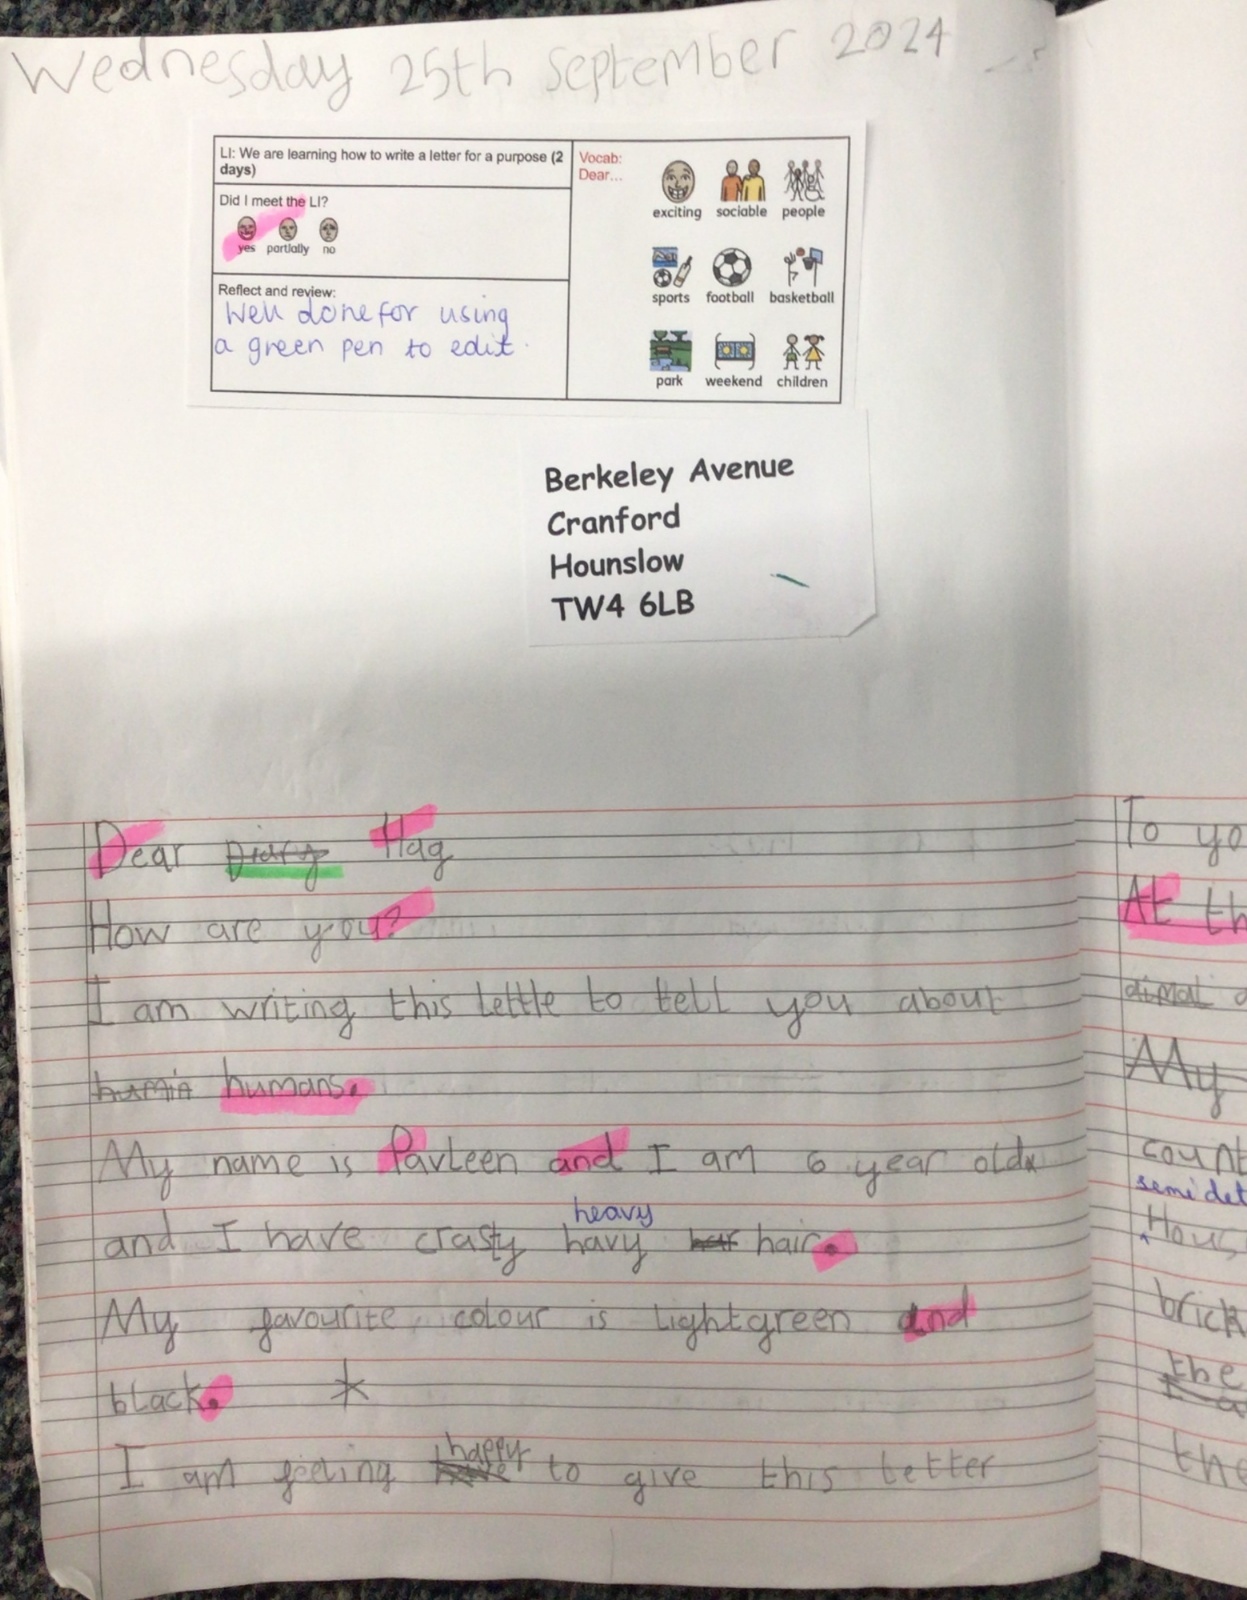 Wednesday 25th September 2024
LI: We are learning how to write a letter for a purpose (2
days)
Did I meet the LI?
yes partially no
Reflect and review:
Well done for using
a green pen to edit.
Vocab:
Dear...
exciting sociable people
sports football basketball
park weekend children
Berkeley Avenue
Cranford
Hounslow
TW4 6LB
Dear Diary Hag
How are you?
I am writing this lettle to tell you about
humin humans.
My name is Pavleen and I am 6 year old
heavy
and I have crasty havy hair.
My favourite colour is lightgreen and
black.
happy
I am feeling to give this letter
To yo
At th
My
count
semi det
Hous
brick
the
the